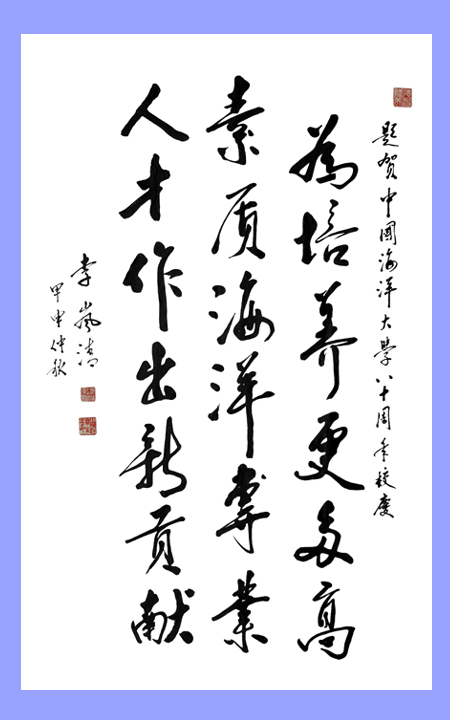 题贺中國海洋大學八十周年校慶
為培养更多高
素质海洋專業
人才作出新贡献
李嵐清
甲申仲秋